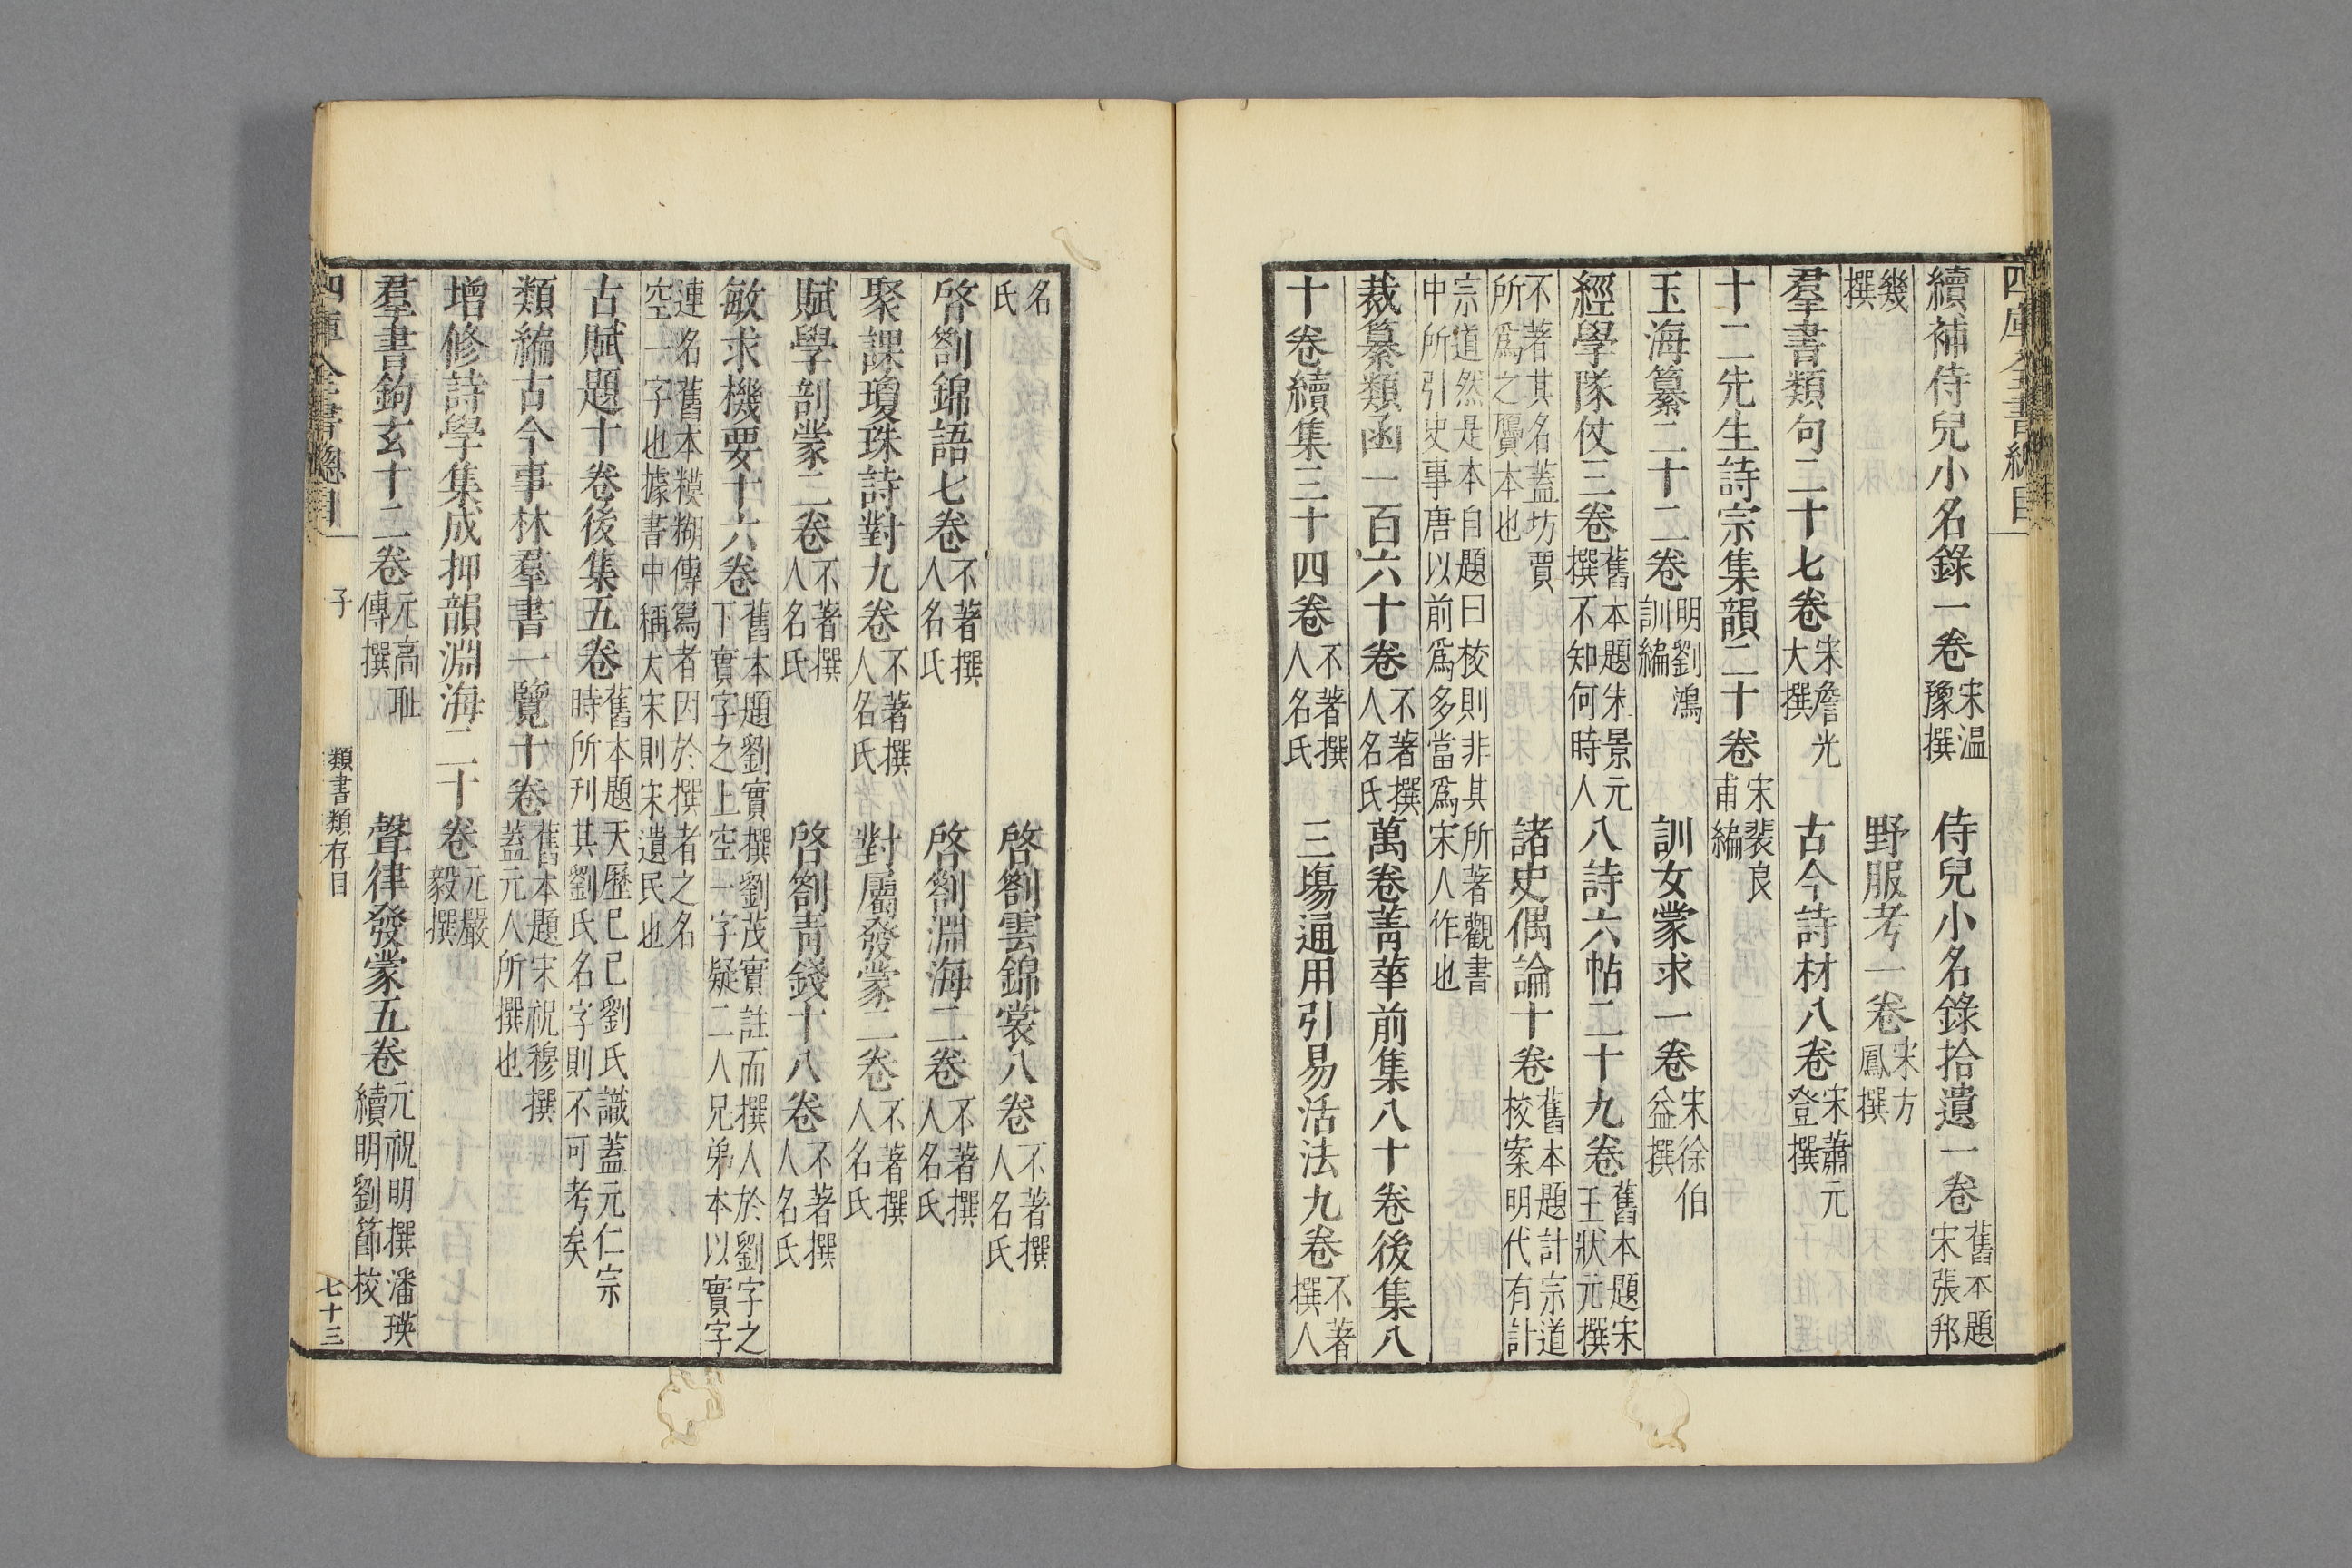 四庫全書總目
續補侍兒小名錄一卷宋温豫撰 侍兒小名錄拾遺一卷舊本題宋張邦
幾撰 野服考一卷宋方鳳撰
羣書類句二十七卷宋詹光大撰 古今詩材八卷宋蕭元登撰
十二先生詩宗集韻二十卷宋裴良甫編
玉海纂二十二卷明劉鴻訓編 訓女蒙求一卷宋徐伯益撰
經學隊仗三卷舊本題朱景元撰不知何時人 八詩六帖二十九卷舊本題宋王狀元撰
不著其名蓋坊賈所爲之贋本也 諸史偶論十卷舊本題計宗道校案明代有計
宗道然是本自題曰校則非其所著觀書中所引史事唐以前爲多當爲宋人作也
裁纂類函一百六十卷不著撰人名氏 萬卷菁華前集八十卷後集八
十卷續集三十四卷不著撰人名氏 三塲通用引易活法九卷不著撰人
名氏 啓劄雲錦裳八卷不著撰人名氏
啓劄錦語七卷不著撰人名氏 啓劄淵海二卷不著撰人名氏
聚課瓊珠詩對九卷不著撰人名氏 對屬發蒙二卷不著撰人名氏
賦學剖蒙二卷不著撰人名氏 啓劄青錢十八卷不著撰人名氏
敏求機要十六卷舊本題劉實撰劉茂實註而撰人於劉字之下實字之上空一字疑二人兄弟本以實字
連名舊本糢糊傳寫者因於撰者之名空一字也據書中稱大宋則宋遺民也
古賦題十卷後集五卷舊本題天歷己巳劉氏識蓋元仁宗時所刊其劉氏名字則不可考矣
類編古今事林羣書一覽十卷舊本題宋祝穆撰蓋元人所撰也
增修詩學集成押韻淵海二十卷元嚴毅撰
羣書鉤玄十二卷元高耻傳撰 聲律發蒙五卷元祝明撰潘瑛續明劉節校
四庫全書總目 子 類書類存目 七十三